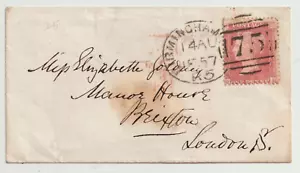 BIRMINGHAM
14 AU
57
75
Miss Elizabeth
Manor House
Brixton
London S.